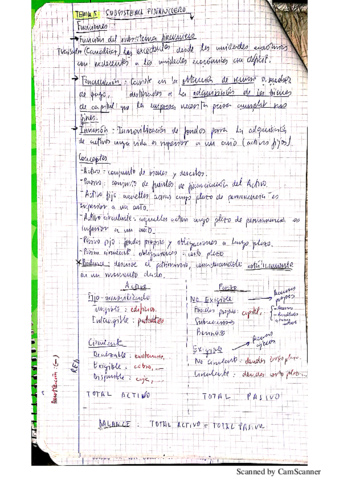 TEMA 5 SUBSISTEMA FINANCIERO
Funciones
Función del subsistema financiero
los excedentes desde las unidades económicas
con excedentes a las unidades económicas con déficit.
Financiación: Consiste en la obtención de recursos o medios
de pago, destinados a la adquisición de los bienes
de capital que la empresa necesita para cumplir sus
fines.
Inversión: Inmovilización de fondos para la adquisición
de activos cuya vida es superior a un año (activos fijos).
Conceptos
- Activo: conjunto de bienes y
- Pasivo: conjunto de fuentes de financiación del Activo.
- Activo fijo: aquellos cuyo plazo de permanencia es
superior a un año.
- Activo circulante: aquellos cuyo plazo de permanencia es
inferior a un año.
- Pasivo fijo: fondos propios y obligaciones a largo plazo.
- Pasivo circulante: obligaciones a corto plazo
Balance: describe el patrimonio,
en un momento dado.
Activo
Fijo-inmovilizado
Tangible: edificios
Intangible: patentes
Circulante
Realizable: existencias,
Exigible: cobros,
Disponible: caja,
TOTAL ACTIVO
Pasivo
No Exigible
Fondos propios: capital,
Subvenciones
Reservas
Recursos
propios
Exigible
Recursos
ajenos
No circulante: deudas largo plazo
Circulante: deudas corto plazo
TOTAL PASIVO
BALANCE: TOTAL ACTIVO = TOTAL PASIVO
Scanned by CamScanner